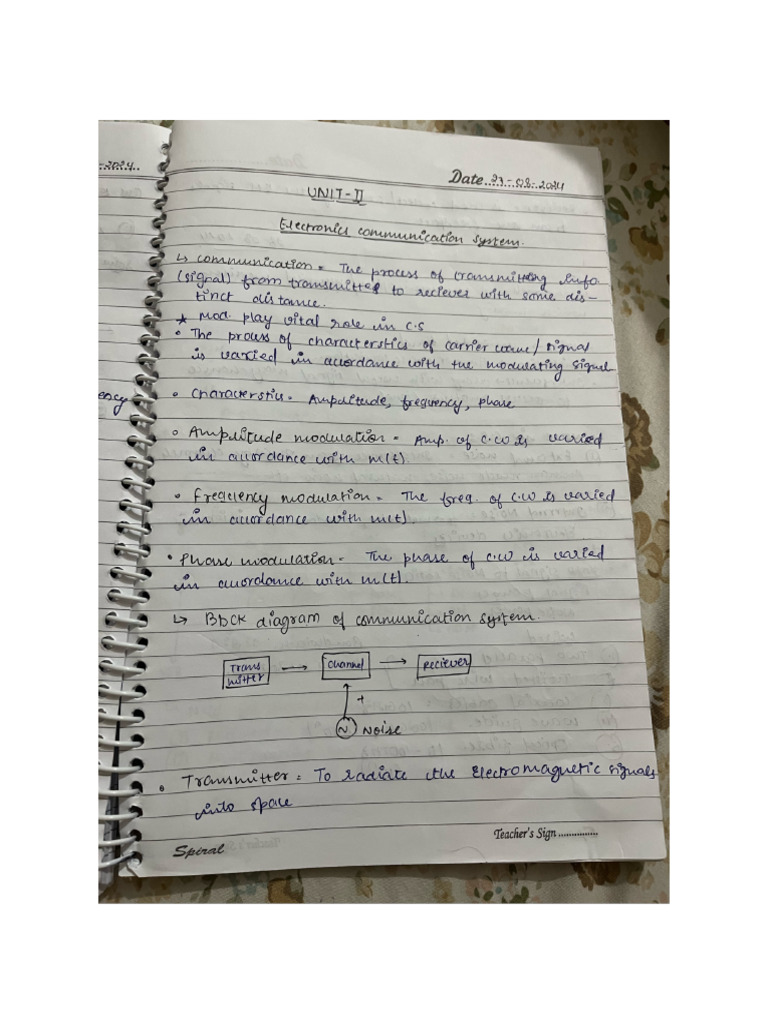 -2024
Date 23-08-2024
UNIT-II
Electronics communication system.
↳ communication = The process of transmitting info
(signal) from transmitter to reciever with some dis-
tinct distance.
★ Mod. play vital role in C.S
• The process of characterstics of carrier wave/signal
is varied in accordance with the modulating signal
• characterstic - Amplitude, frequency, phase
• Amplitude modulation = Amp. of C.W is varied
in accordance with m(t).
• Freqciency modulation = The freq. of C.W is varied
in accordance with m(t)
• Phase modulation - The phase of C.W is varied
in accordance with m(t).
↳ Block diagram of communication system.
Trans
mitter → channel → reciever
+
~ Noise
• Transmitter = To radiate the Electromagnetic signals
into space
Teacher's Sign ...............
Spiral